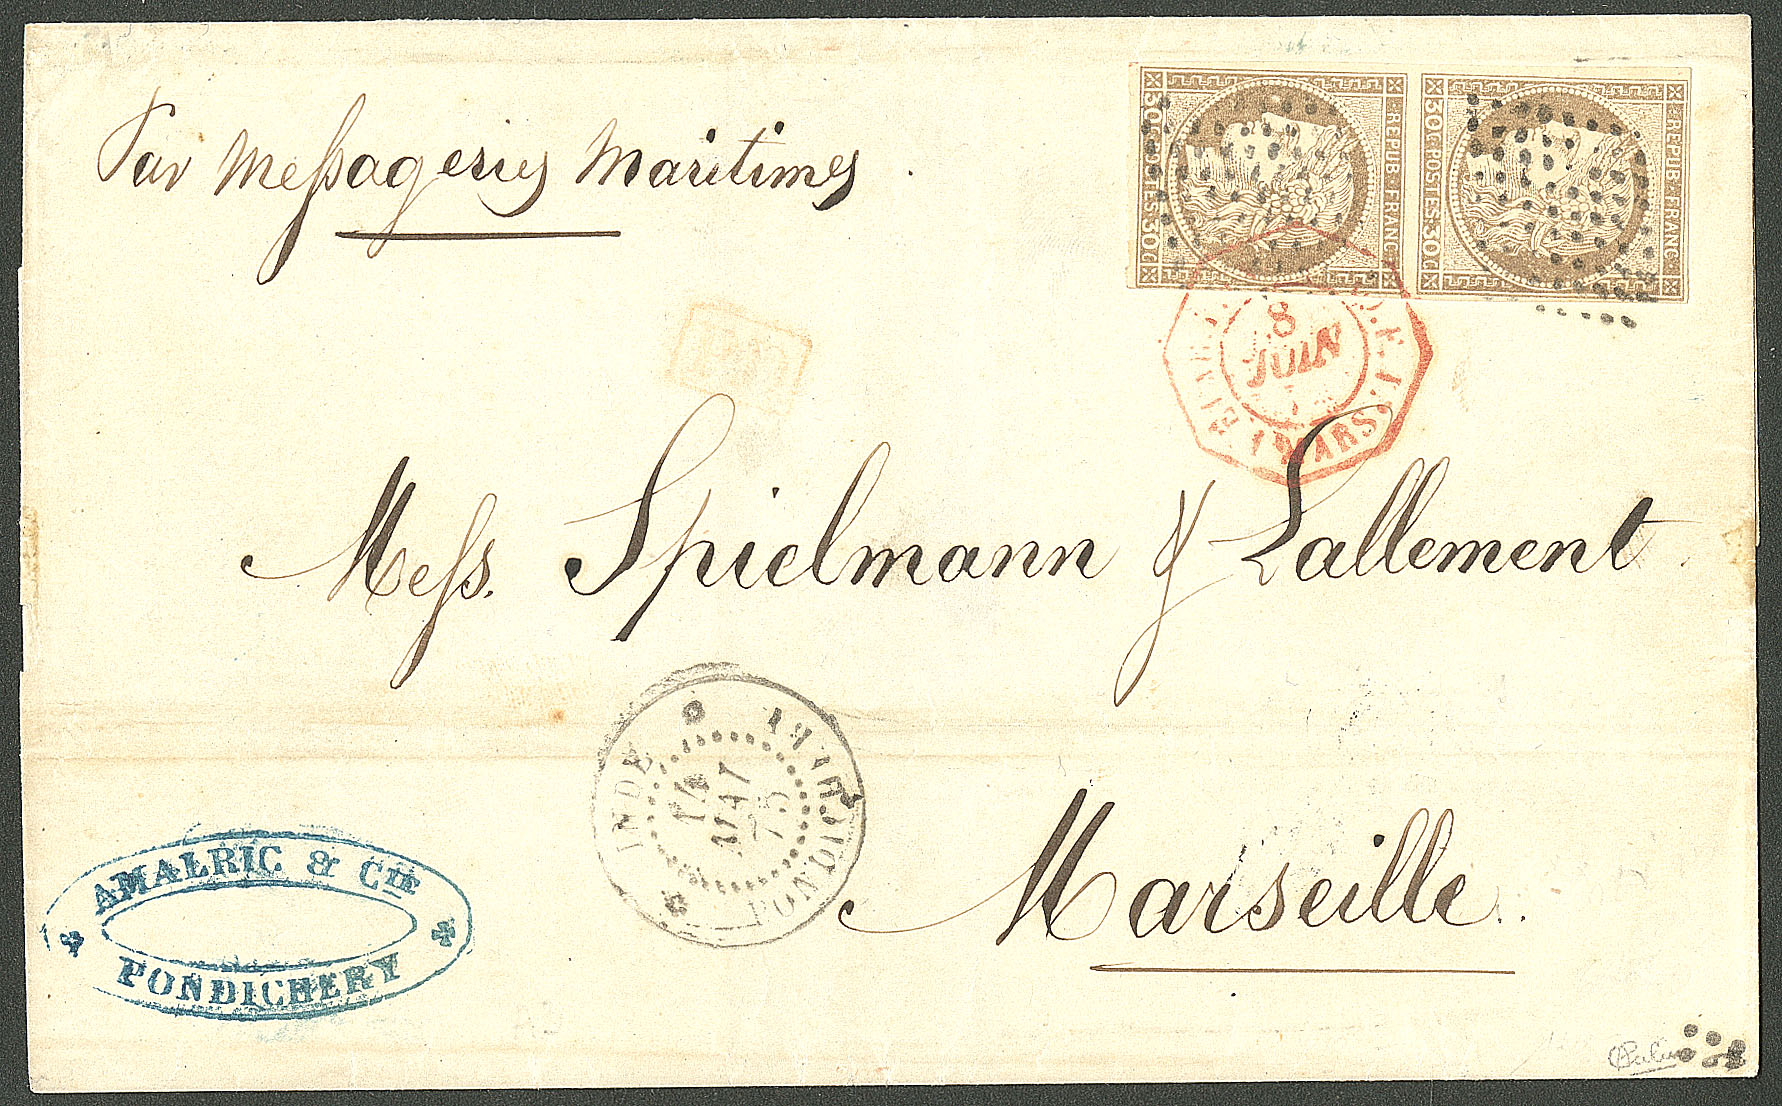 Par Messageries Maritimes
REPUB. FRANC.
30 C. POSTES 30 C.
REPUB. FRANC.
30 C. POSTES 30 C.
8
JUIN
MARS.
Mess. Spielmann & Lallement
INDE
PONDICHERY
MAI
75
Marseille
AMALRIC & CIE
PONDICHERY